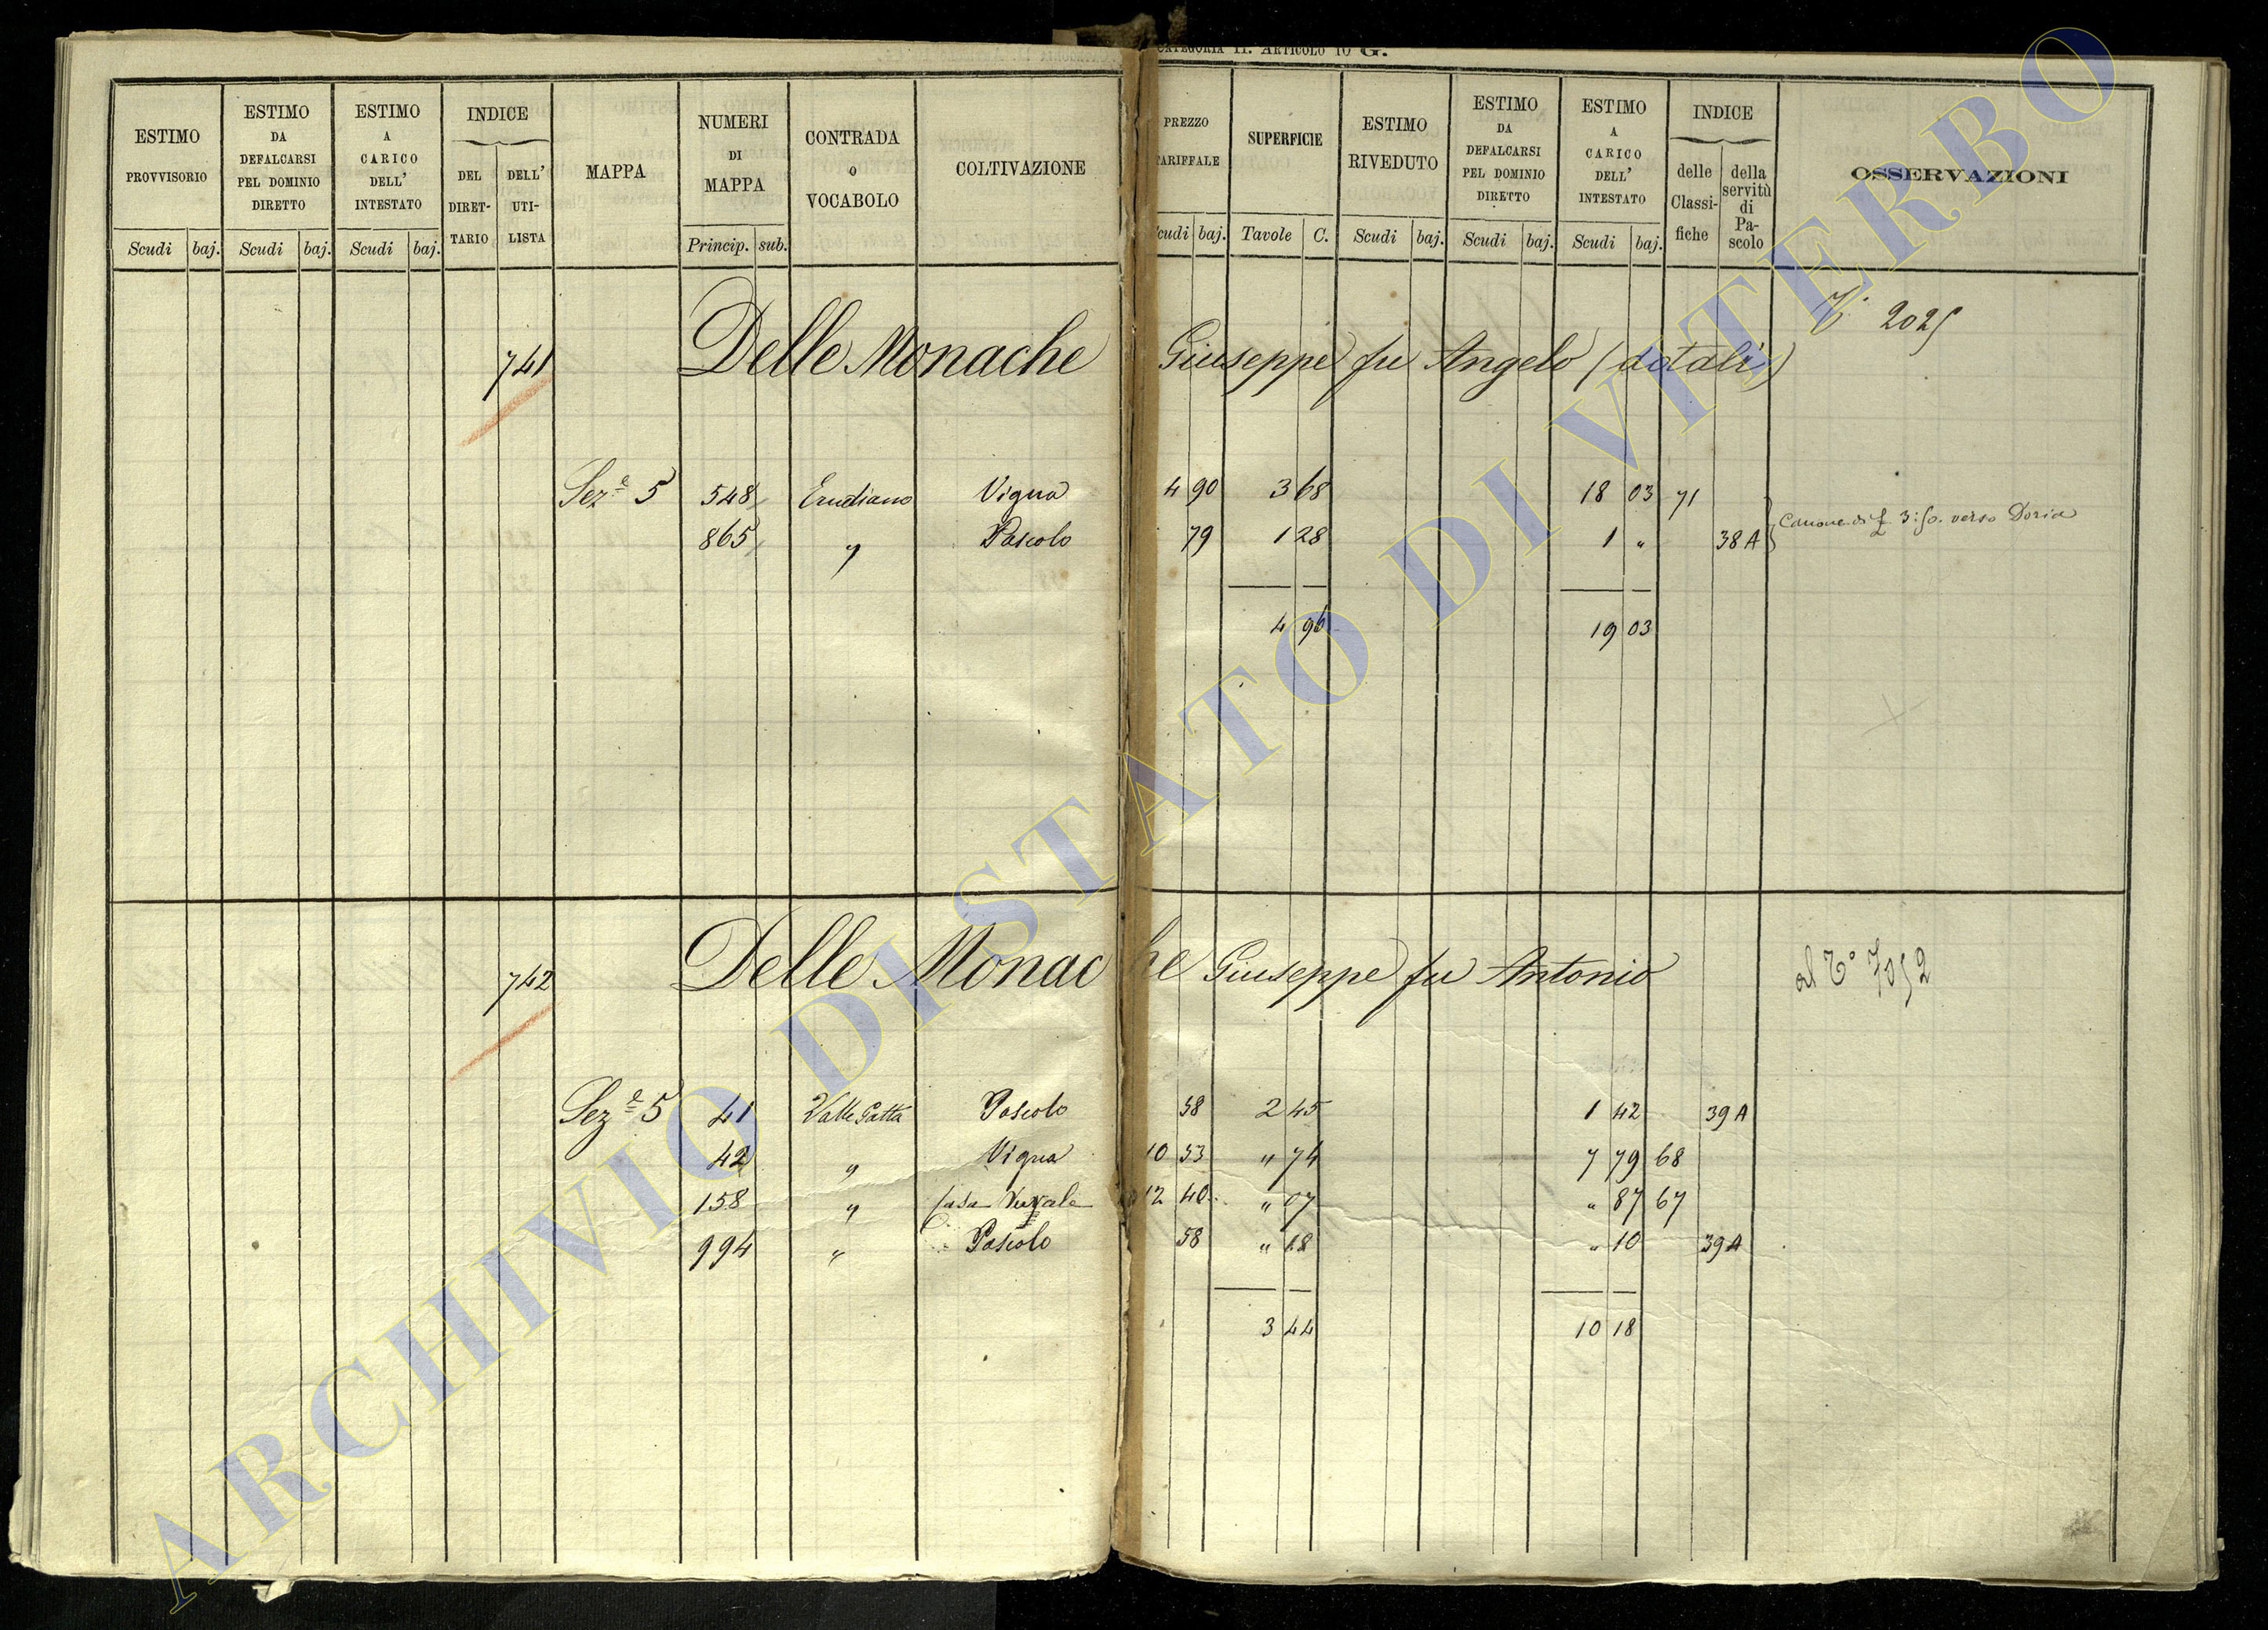 CATEGORIA II. ARTICOLO 10 G.
ESTIMO PROVVISORIO Scudi baj.
ESTIMO DA DEFALCARSI PEL DOMINIO DIRETTO Scudi baj.
ESTIMO A CARICO DELL' INTESTATO Scudi baj.
INDICE DEL DIRET- TARIO DELL' UTI- LISTA
MAPPA
NUMERI DI MAPPA Princip. sub.
CONTRADA O VOCABOLO
COLTIVAZIONE
PREZZO TARIFFALE Scudi baj.
SUPERFICIE Tavole C.
ESTIMO RIVEDUTO Scudi baj.
ESTIMO DA DEFALCARSI PEL DOMINIO DIRETTO Scudi baj.
ESTIMO A CARICO DELL' INTESTATO Scudi baj.
INDICE delle Classi- fiche della servitù di Pa- scolo
OSSERVAZIONI
741 Delle Monache Giuseppe fu Angelo (dotali) 2025
Sez.e 5 548 Vigna 4 90 3 68 18 03 71
865 " Pascolo 79 1 28 1 " 38 A Canone di verso Doria
4 96 19 03
742 Delle Monache Giuseppe fu Antonio al T° 7052
Sez.e 5 41 Valle Gatta Pascolo 58 2 45 1 42 39 A
42 " Vigna 10 53 " 74 7 79 68
158 " Casa 12 40 " 07 " 87 67
994 " Pascolo 58 " 18 " 10 39 A
3 44 10 18
ARCHIVIO DI STATO DI VITERBO